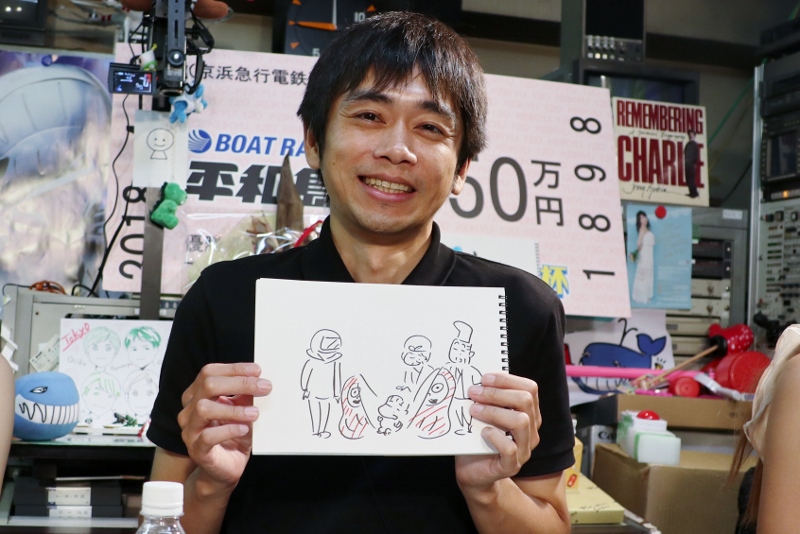 京浜急行電鉄
BOAT RA
平和島
50
万
円
2018
1898
杯
REMEMBERING
CHARLIE
Tokyo